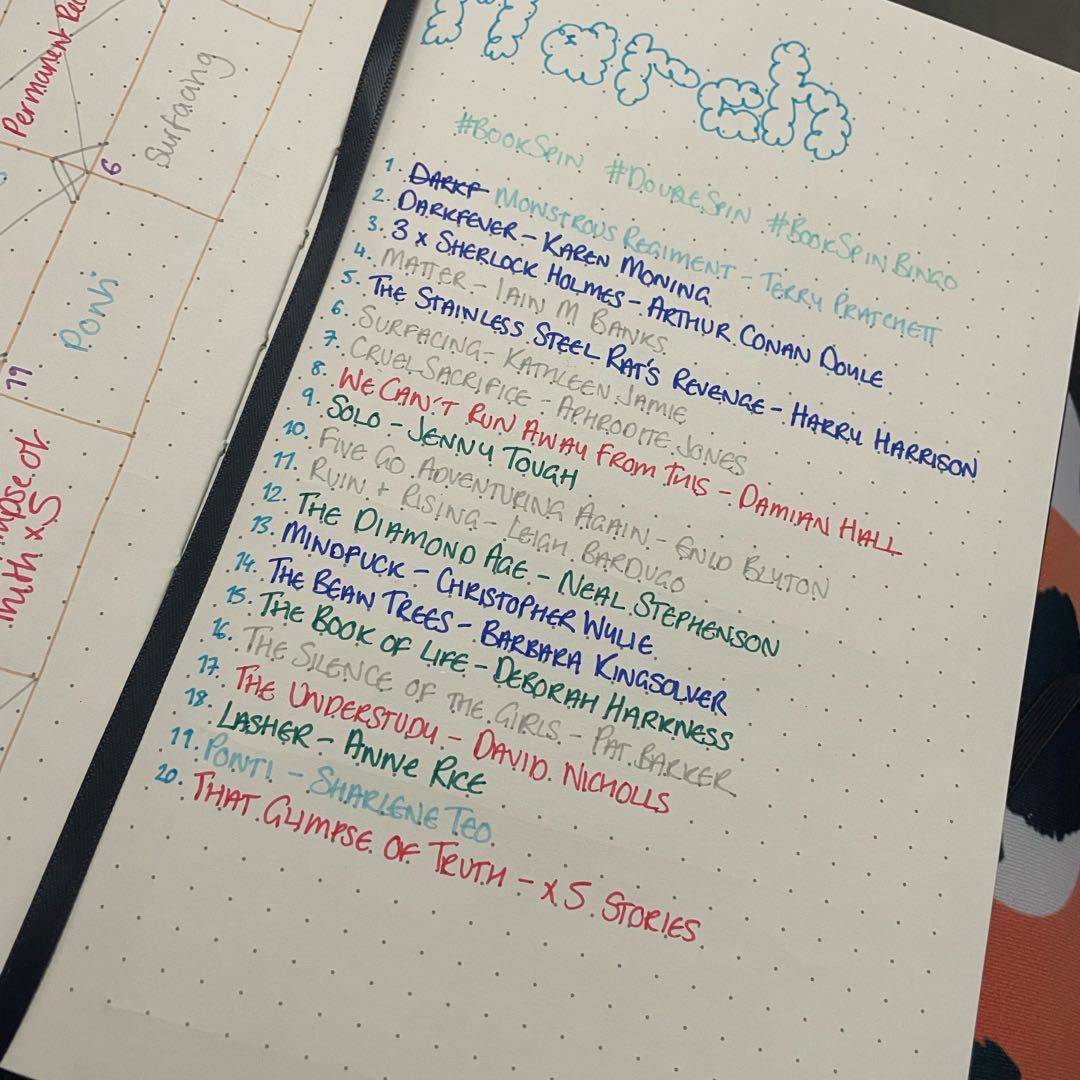 Permanent Re
6
Surfacing
Ponti
19
impse of
Truth x 5
March
#BookSpin #DoubleSpin #BookSpinBingo
1. DARKF MONSTROUS REGIMENT - TERRY PRATCHETT
2. DARKFEVER - KAREN MONING
3. 3 x SHERLOCK HOLMES - ARTHUR CONAN DOYLE
4. MATTER - IAIN M BANKS
5. THE STAINLESS STEEL RAT'S REVENGE - HARRY HARRISON
6. SURFACING - KATHLEEN JAMIE
7. CRUEL SACRIFICE - APHRODITE JONES
8. WE CAN'T RUN AWAY FROM THIS - DAMIAN HALL
9. SOLO - JENNY TOUGH
10. FIVE GO ADVENTURING AGAIN - ENID BLYTON
11. RUIN + RISING - LEIGH BARDUGO
12. THE DIAMOND AGE - NEAL STEPHENSON
13. MINDFUCK - CHRISTOPHER WYLIE
14. THE BEAN TREES - BARBARA KINGSOLVER
15. THE BOOK OF LIFE - DEBORAH HARKNESS
16. THE SILENCE OF THE GIRLS - PAT BARKER
17. THE UNDERSTUDY - DAVID NICHOLLS
18. LASHER - ANNE RICE
19. PONTI - SHARLENE TEO
20. THAT GLIMPSE OF TRUTH - x 5 STORIES